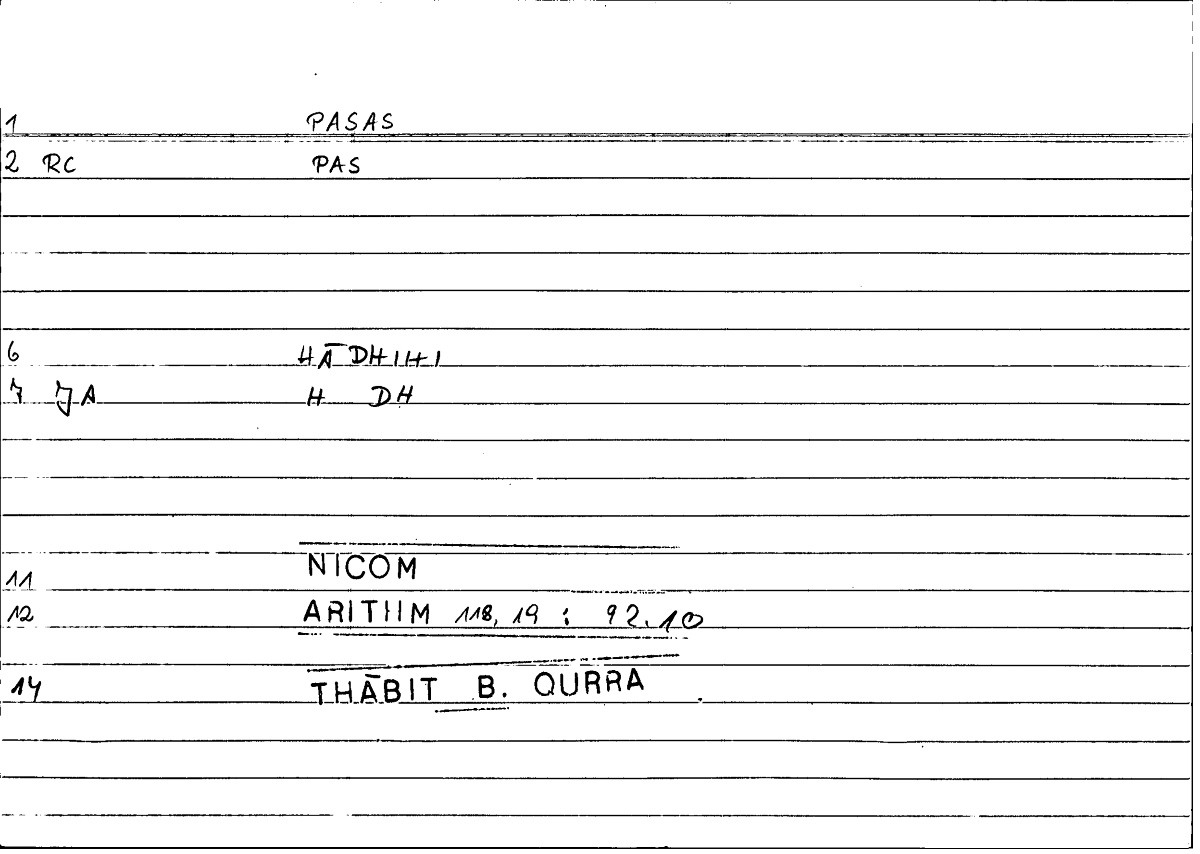 1 PASAS
2 RC PAS
6 HĀDHIHI
7 JA H DH
11 NICOM
12 ARITHM 118, 19 : 92.10
14 THĀBIT B. QURRA